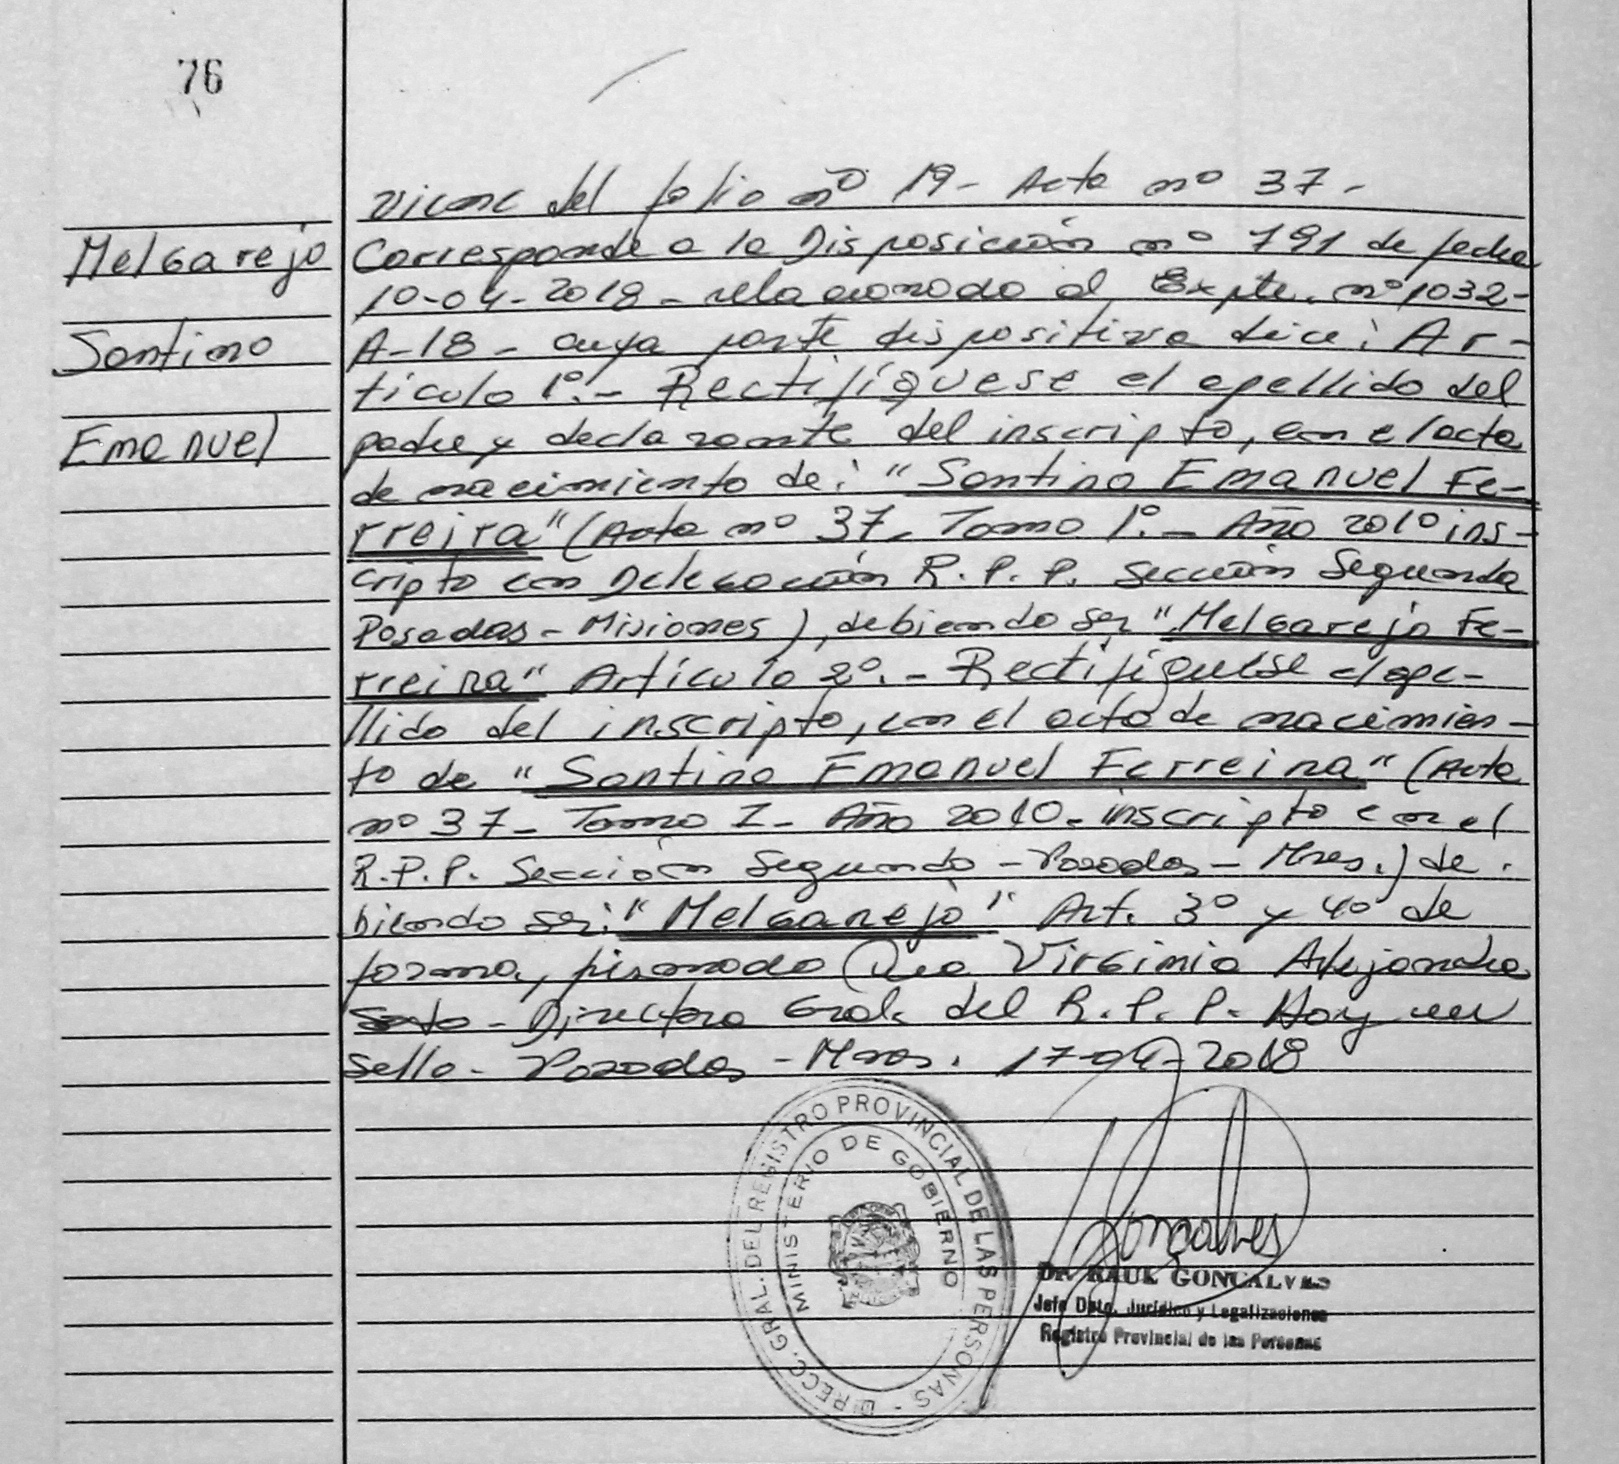 76
Viene del folio nº 19 - Acta nº 37 -
Melgarejo
Corresponde a la Disposición nº 791 de fecha
10-04-2018 - relacionado al Expte. nº 1032-
Santino
A-18 - cuya parte dispositiva dice: Ar-
tículo 1º.- Rectifíquese el apellido del
Emanuel
padre y declarante del inscripto, en el acta
de nacimiento de: "Santino Emanuel Fe-
rreira" (Acta nº 37 - Tomo 1º. - Año 2010 ins-
cripto en Delegación R.P.P. Sección Segunda
Posadas - Misiones), debiendo ser "Melgarejo Fe-
rreira" Artículo 2º. - Rectifíquese el ape-
llido del inscripto, en el acta de nacimien-
to de "Santino Emanuel Ferreira" (Acta
nº 37 - Tomo I - Año 2010 - inscripto en el
R.P.P. Sección Segunda - Posadas - Mnes.) de-
biendo ser: "Melgarejo" Art. 3º y 4º de
forma, firmado Dra Virginia Alejandra
- Directora Gral. del R.P.P. Hay un
sello - Posadas - Mnes. 17-04-2018
DIRECC. GRAL. DEL REGISTRO PROVINCIAL DE LAS PERSONAS -
MINISTERIO DE GOBIERNO
Gonçalves
Dr. RAUL GONCALVES
Jefe Dpto. Jurídico y Legalizaciones
Registro Provincial de las Personas